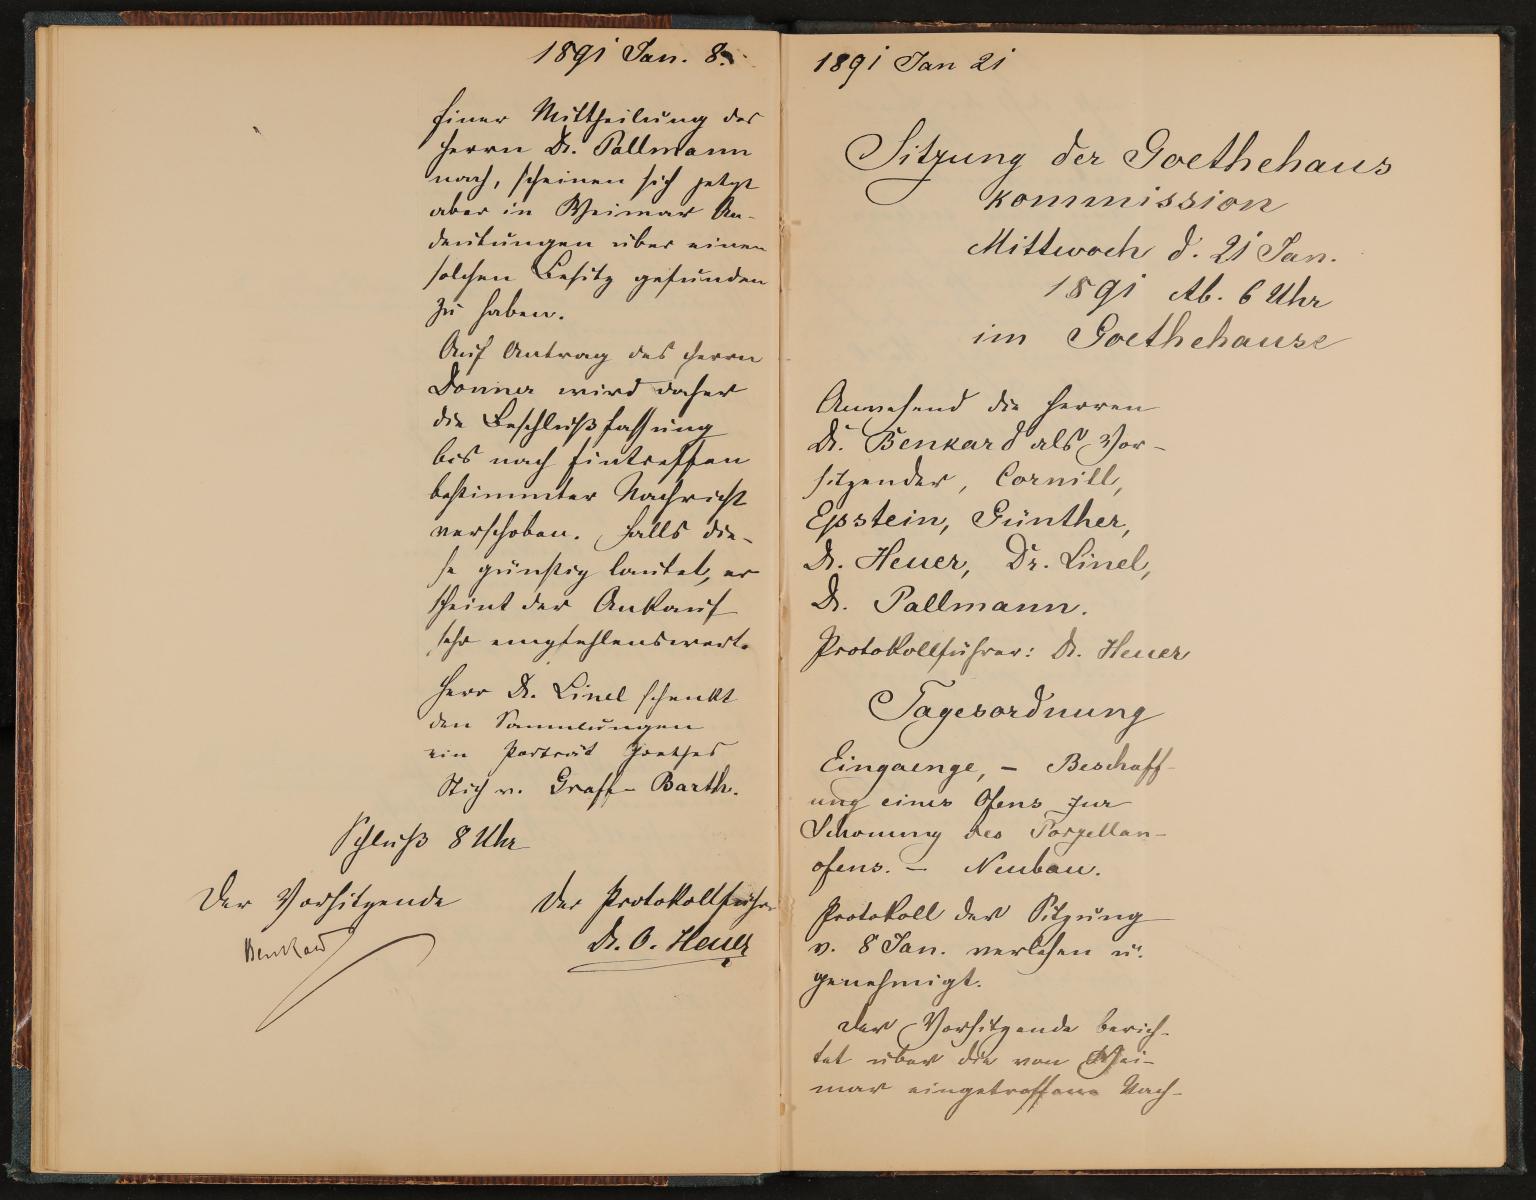 1891 Jan. 8.
Einer Mittheilung des
Herrn Dr. Pallmann
nach, scheinen sich jetzt
aber in Weimar An-
deutungen über einen
solchen Besitz gefunden
zu haben.
Auf Antrag des Herrn
Donner wird daher
die Beschlußfassung
bis nach Eintreffen
bestimmter Nachricht
verschoben. Falls die-
se günstig lautet, er
scheint der Ankauf
sehr empfehlenswert.
Herr Dr. Linel schenkt
den Sammlungen
ein Porträt Goethes
Stich v. Graff-Barth.
Schluß 8 Uhr
Der Vorsitzende Der Protokollführer
Benkard Dr. O. Heuer
1891 Jan 21
Sitzung der Goethehaus
kommission
Mittwoch d. 21 Jan.
1891 Ab. 6 Uhr
im Goethehause
Anwesend die Herren
Dr. Benkard als Vor-
sitzender, Cornill,
Epstein, Günther,
Dr. Heuer, Dr. Linel,
Dr. Pallmann.
Protokollführer: Dr. Heuer
Tagesordnung
Eingaenge, - Beschaff-
ung eines Ofens zur
Schonung des Porzellan-
ofens. - Neubau.
Protokoll der Sitzung
v. 8 Jan. verlesen u.
genehmigt.
Der Vorsitzende berich-
tet über die von Wei-
mar eingetroffene Nach-